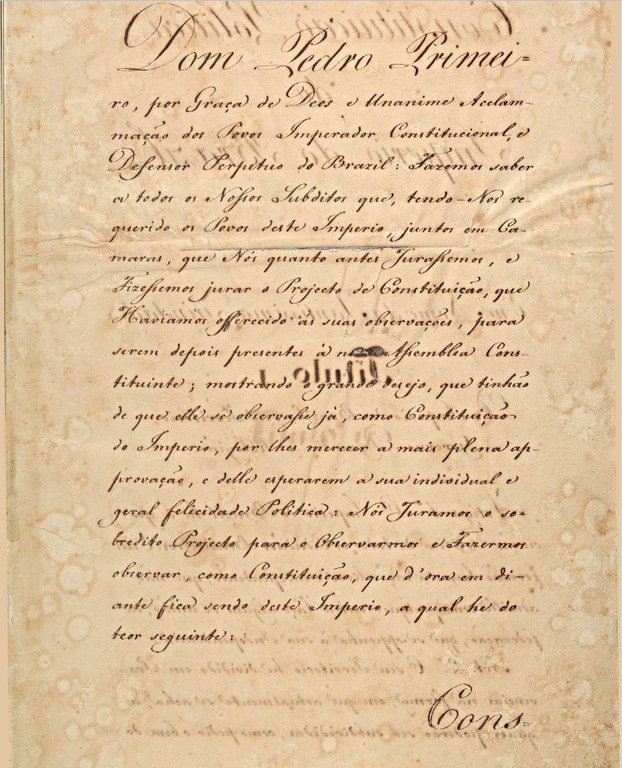 Dom Pedro Primei=
ro, por Graça de Deos e Unanime Acclam-
mação dos Povos Imperador Constitucional, e
Defensor Perpetuo do Brazil: Fazemos saber
a todos os Nossos Subditos que, tendo-Nos re-
querido os Povos deste Imperio, juntos em Ca-
maras, que Nós quanto antes Jurassemos, e
Fizessemos jurar o Projecto de Constituição, que
Haviamos offerecido ás suas observações, para
serem depois presentes á nova Assemblea Cons-
tituinte; mostrando o grande desejo, que tinhão
de que elle se observasse já, como Constituição
do Imperio, por lhes merecer a mais plena ap-
provação, e delle esperarem a sua individual e
geral felicidade Politica: Nós Juramos o so-
bredito Projecto para o Observarmos e Fazermos
observar, como Constituição, que d'ora em di-
ante fica sendo deste Imperio, a qual he do
teor seguinte:
Cons=